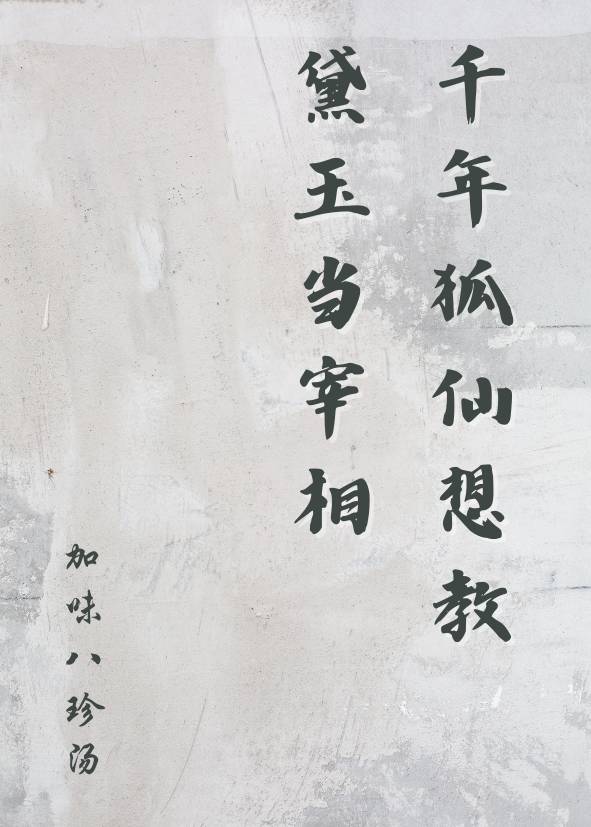 千年狐仙想教
黛玉当宰相
加味八珍汤